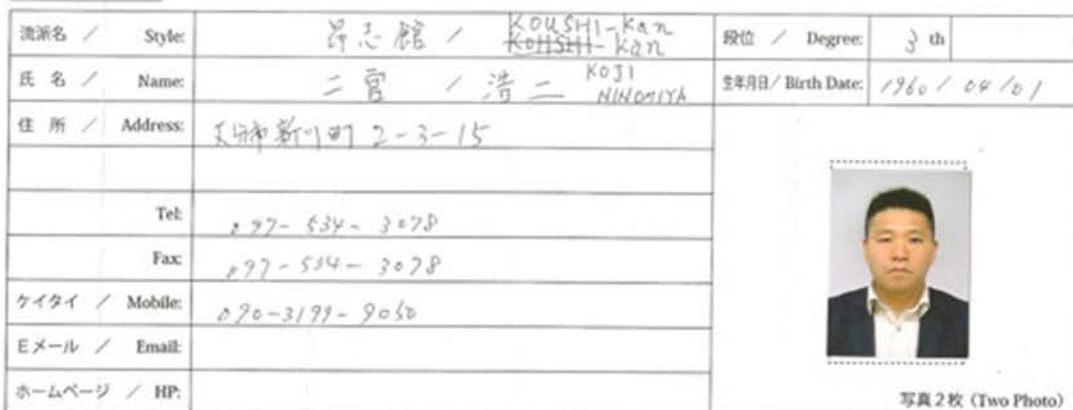 流派名 / Style: 昇志館 / KOUSHI-Kan
KOHSHI-Kan
段位 / Degree: 3 th
氏 名 / Name: 二宮 / 浩二 KOJI
NINOMIYA
生年月日 / Birth Date: 1960 / 04 / 01
住 所 / Address: 大分市新川町 2-3-15
Tel: 097-534-3078
Fax: 097-534-3078
ケイタイ / Mobile: 090-3199-9050
Eメール / Email:
ホームページ / HP:
写真2枚 (Two Photo)